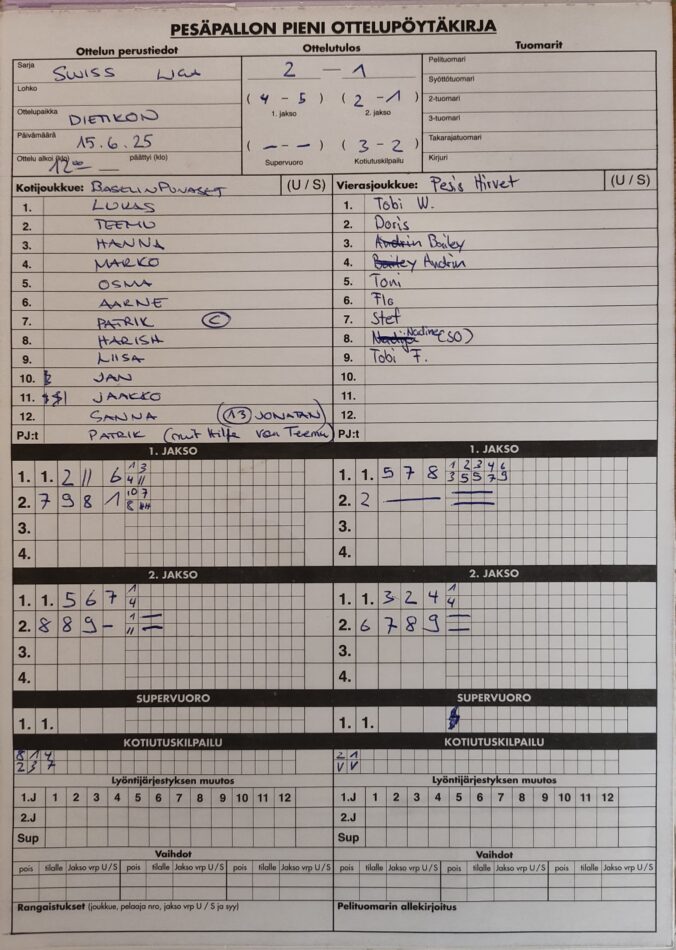 PESÄPALLON PIENI OTTELUPÖYTÄKIRJA
Ottelun perustiedot
Sarja SWISS LIGA
Lohko
Ottelupaikka DIETIKON
Päivämäärä 15.6.25
Ottelu alkoi (klo) 12⁰⁰ päättyi (klo)
Ottelutulos
2 — 1
( 4 - 5 ) ( 2 - 1 )
1. jakso 2. jakso
( - - - ) ( 3 - 2 )
Supervuoro Kotiutuskilpailu
Tuomarit
Pelituomari
Syöttötuomari
2-tuomari
3-tuomari
Takarajatuomari
Kirjuri
Kotijoukkue: BASELIN PUNASET (U / S)
1. LUKAS
2. TEEMU
3. HANNA
4. MARKO
5. OSMA
6. AARNE
7. PATRIK C
8. HARISH
9. LIISA
10. JAN
11. JAAKKO
12. SANNA (13 JONATAN)
PJ:t PATRIK (mit Hilfe von Teemu)
Vierasjoukkue: Pesis Hirvet (U / S)
1. Tobi W.
2. Doris
3. Andrin Bailey
4. Bailey Andrin
5. Toni
6. Flo
7. Stef
8. Nadja Nadine (SO)
9. Tobi F.
10.
11.
12.
PJ:t
1. JAKSO
1. 1. 2 11 6 1 3
4 11
2. 7 9 8 1 10 7
8
3.
4.
1. JAKSO
1. 1. 5 7 8 1 2 3 4 6
3 5 5 7 9
2. 2 —
3.
4.
2. JAKSO
1. 1. 5 6 7 1
4
2. 8 8 9 - 1
11
3.
4.
2. JAKSO
1. 1. 3 2 4 1
4
2. 6 7 8 9
3.
4.
SUPERVUORO
1. 1.
SUPERVUORO
1. 1.
KOTIUTUSKILPAILU
8 1 4
2 3 7
KOTIUTUSKILPAILU
2 1
V V
Lyöntijärjestyksen muutos
1.J 1 2 3 4 5 6 7 8 9 10 11 12
2.J
Sup
Lyöntijärjestyksen muutos
1.J 1 2 3 4 5 6 7 8 9 10 11 12
2.J
Sup
Vaihdot
pois tilalle Jakso vrp U / S pois tilalle Jakso vrp U / S pois tilalle Jakso vrp U / S
Vaihdot
pois tilalle Jakso vrp U / S pois tilalle Jakso vrp U / S pois tilalle Jakso vrp U / S
Rangaistukset (joukkue, pelaaja nro, jakso vrp U / S ja syy)
Pelituomarin allekirjoitus